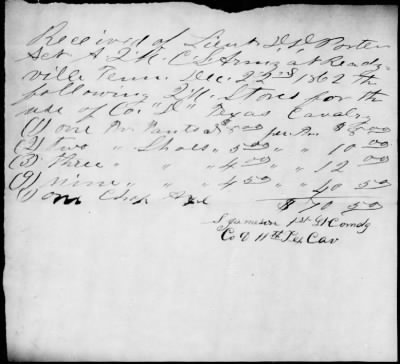 Received of Lieut D. D. Porter
Act A. Q. M. C. S. Army at Ready-
ville Tenn. Dec. 22nd 1862 the
following Q.M. Stores for the
use of Co. " " Texas Cavalry
(1) one Pr. Pants @ 5.00 per Pr. $ 5.00
(2) two " Shoes " 5.00 " " 10 00
(3) three " " " 4.00 " " 12 00
(9) nine " " " 4 50 " " 40 50
(1) one Chop Axe
$ 70 50
S Jameson 1st Lt Comdg
Co 11th Tex Cav